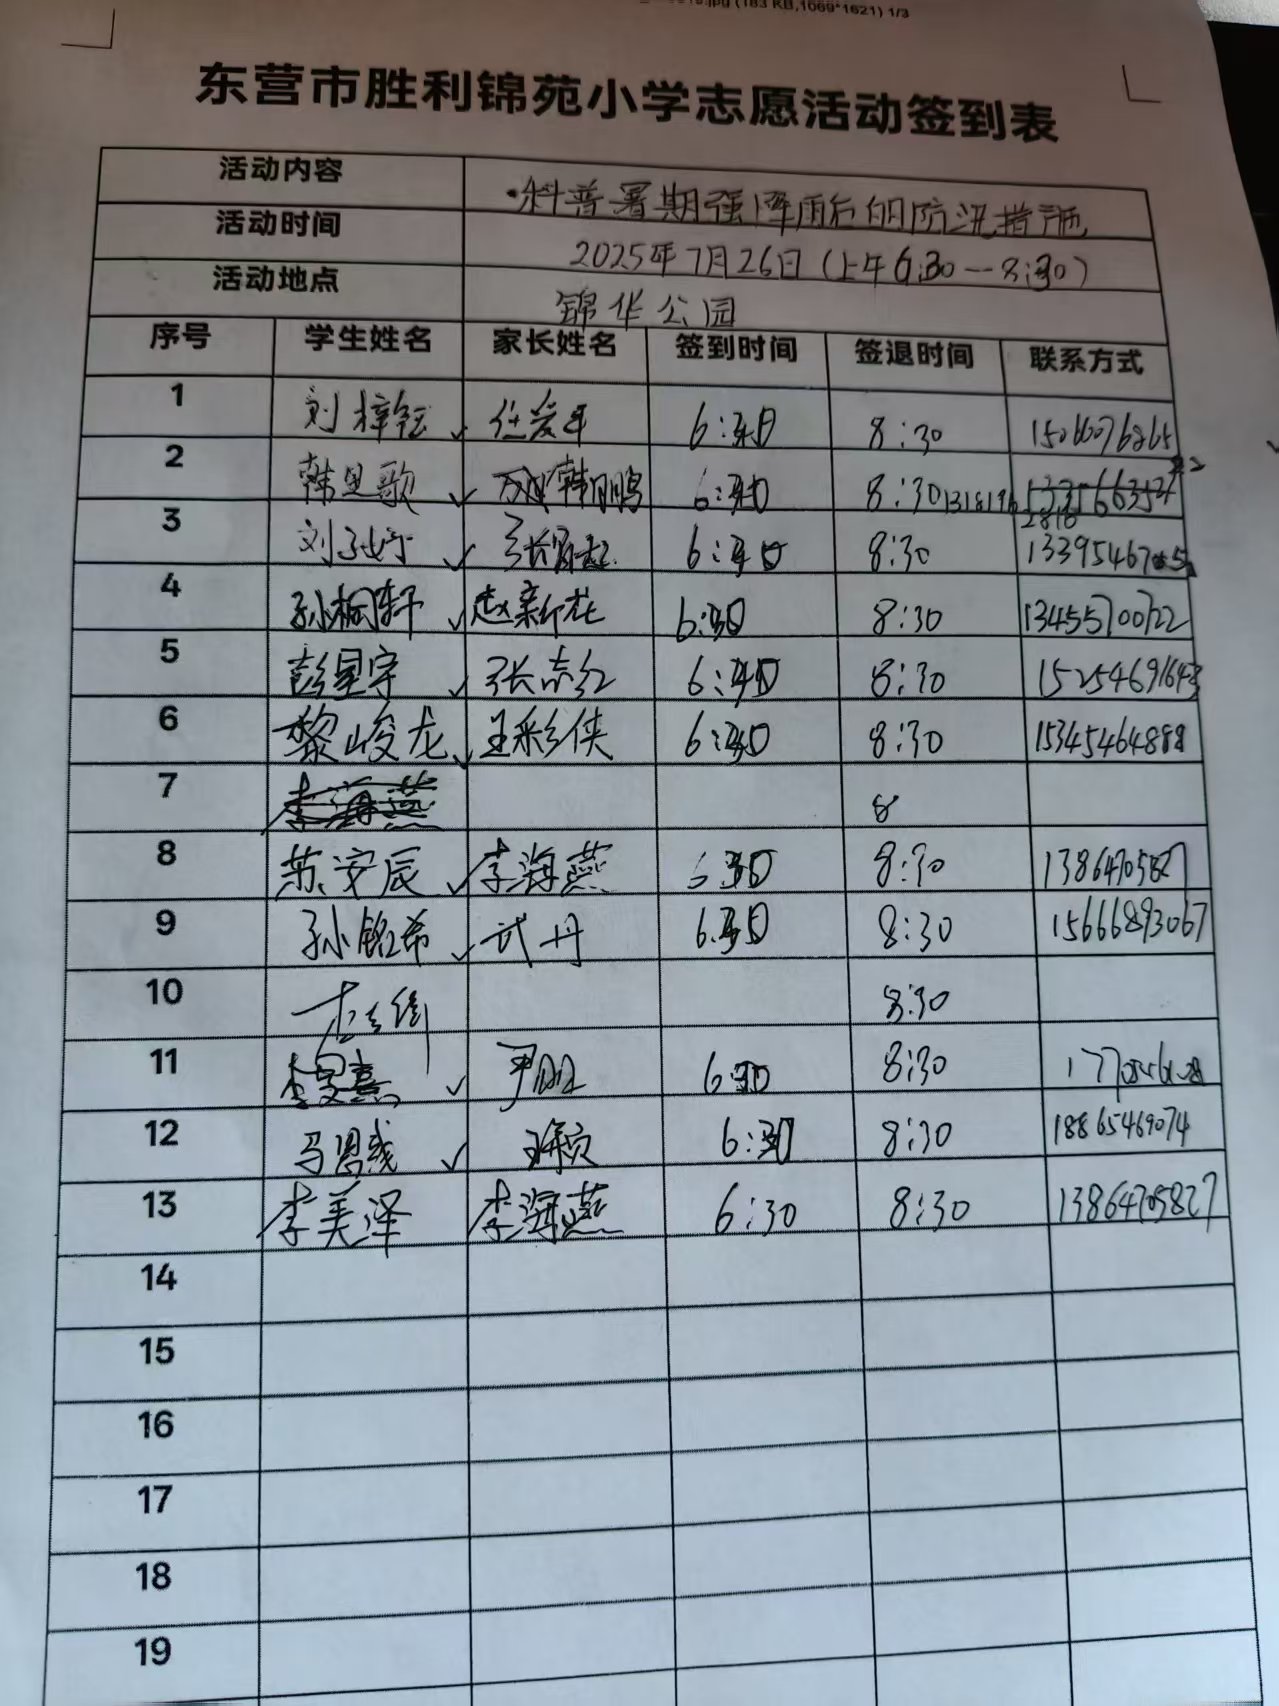 (183 KB,1069*1621) 1/3
东营市胜利锦苑小学志愿活动签到表
活动内容 科普暑期强降雨后的防汛措施
活动时间 2025年7月26日(上午6:30—8:30)
活动地点 锦华公园
序号 学生姓名 家长姓名 签到时间 签退时间 联系方式
1 刘梓钰 任爱平 8:30
2 韩思歌 韩朋鹏 8:30
3 8:30
4 孙桐轩 赵新花 6:30 8:30 13455700722
5 彭星宇 张志红 8:30 15254691643
6 黎峻龙 王彩侠 8:30 15345464888
7 李海燕 8
8 苏安辰 李海燕 6:30 8:30 13864705827
9 孙铭希 武丹 8:30 15666893067
10 8:30
11 6:30 8:30
12 马恩 6:30 8:30 18865469074
13 李美泽 李海燕 6:30 8:30 13864705827
14
15
16
17
18
19